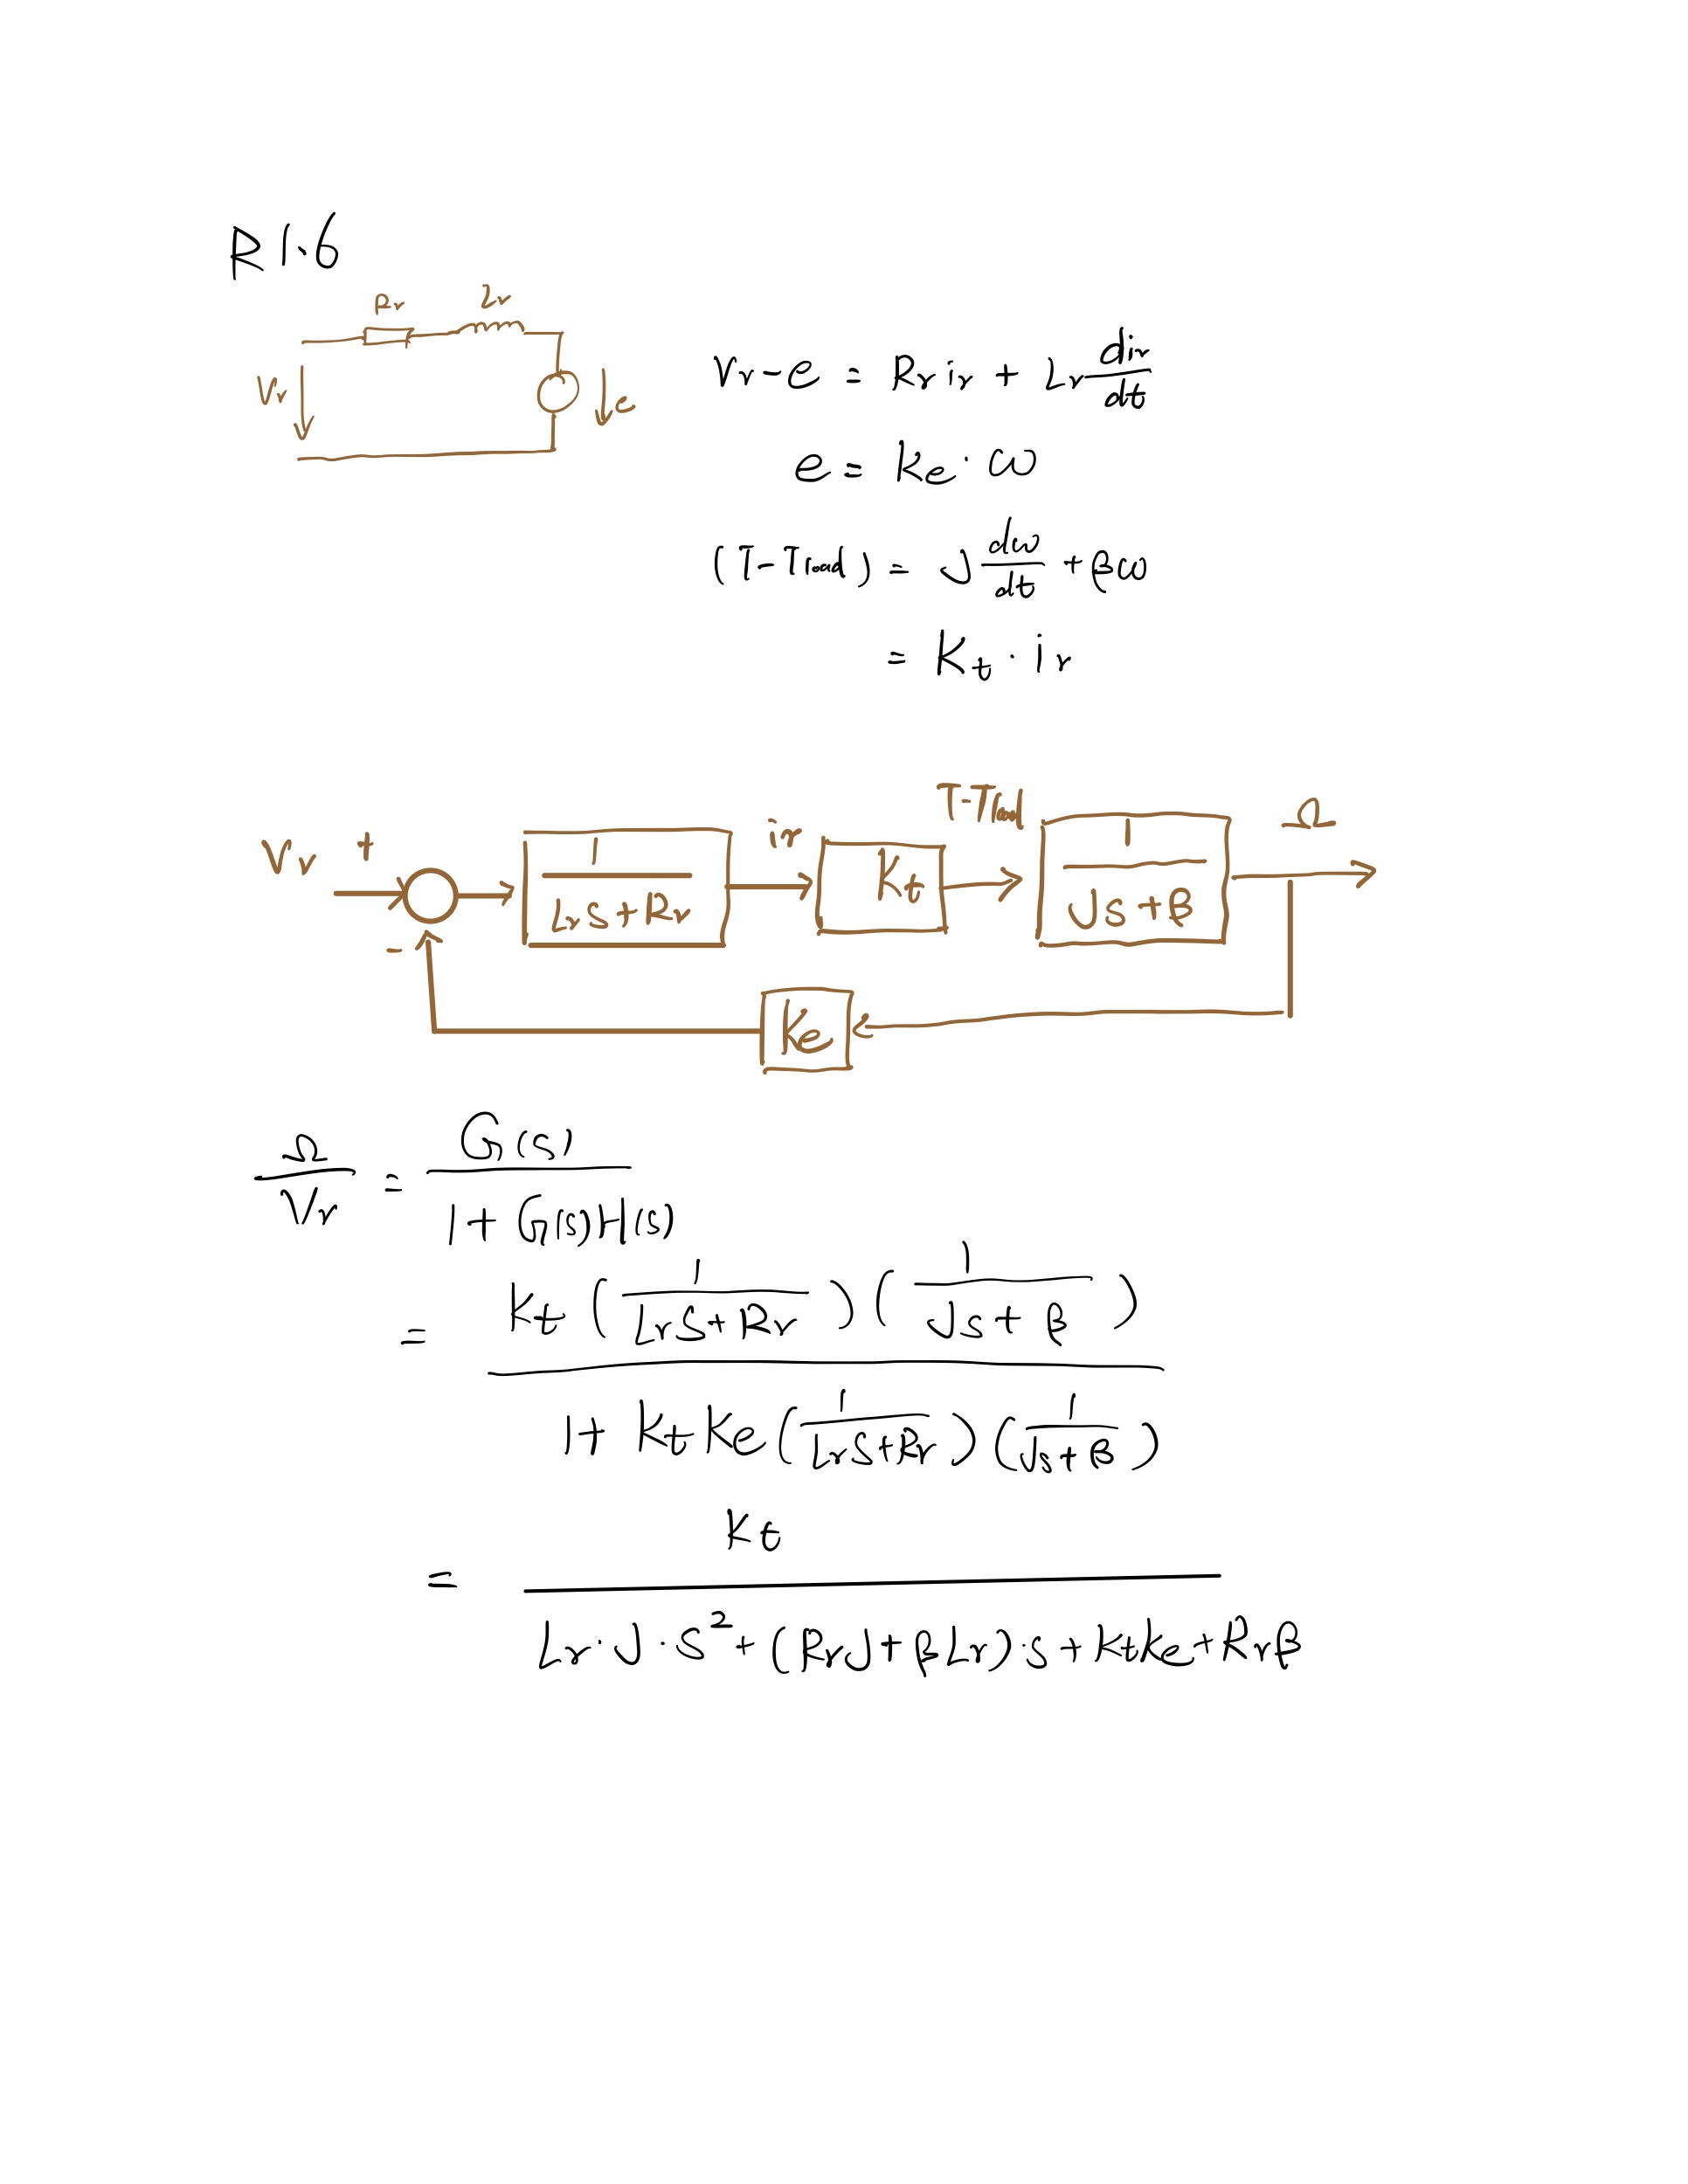 R1.6
Rr Lr
Vr e
Vr-e = Rr ir + Lr dir/dt
e = ke · ω
(T-Tload) = J dω/dt + βω
= Kt · ir
Vr + - 1/(Lrs+Rr) ir kt T-Tload 1/(Js+β) Ω
Ke
Ω/Vr = G(s)/(1+G(s)H(s))
= kt (1/(Lrs+Rr)) (1/(Js+β)) / (1+ktKe(1/(Lrs+Rr))(1/(Js+β)))
= kt / (Lr·J·s²+(RrJ+βLr)·s+ktke+Rrβ)